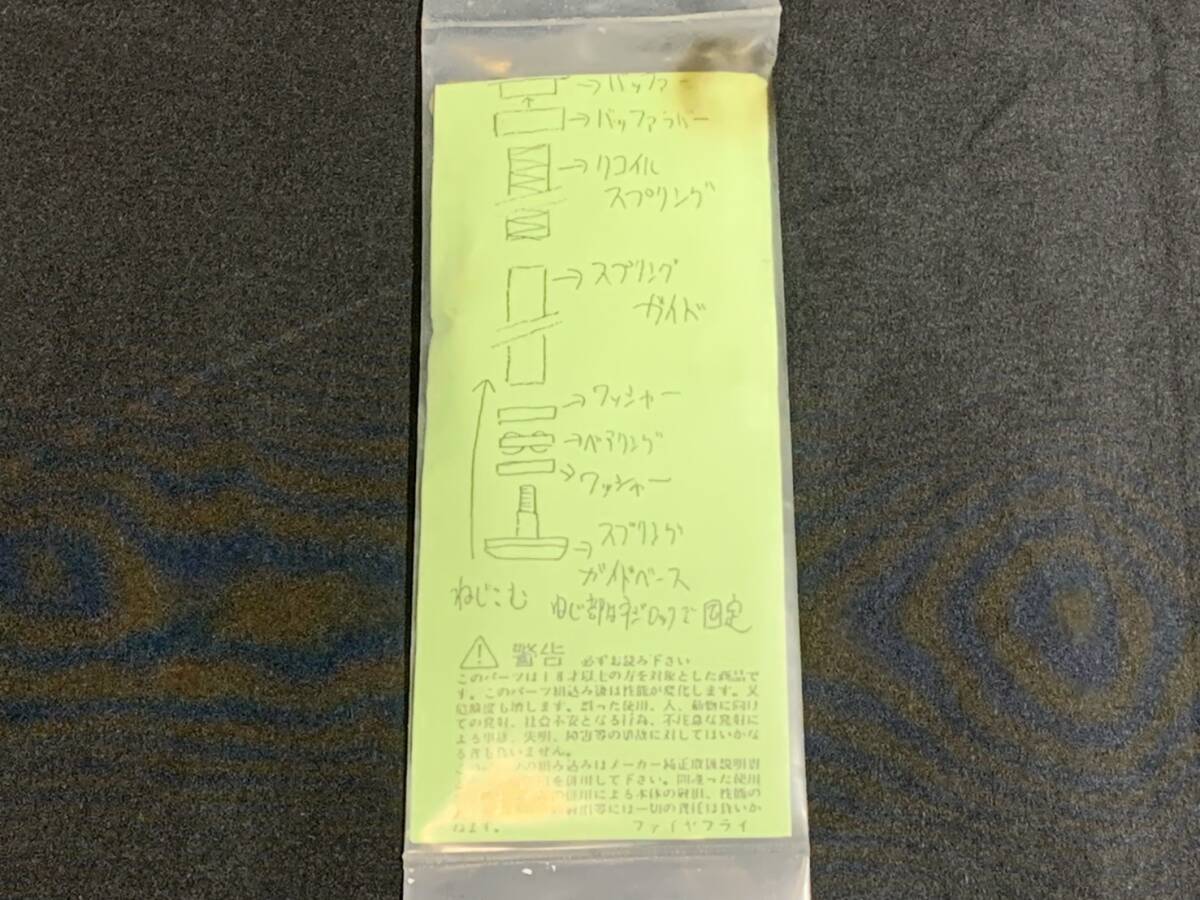 バッファ
バッファラバー
リコイル
スプリング
スプリング
ガイド
ワッシャー
ベアリング
ワッシャー
スプリング
ガイドベース
ねじこむ
ねじ部はネジロックで固定
警告 必ずお読み下さい
このパーツは18才以上の方を対象とした商品で
す。このパーツ組込み後は性能が変化します。又
危険度も増します。誤った使用、人、動物に向け
ての発射、社会不安となる行為、不注意な発射に
よる事故、失明、障害等の事故に対してはいかな
る責も負いません。
の組み込みはメーカー純正取扱説明書
を併用して下さい。間違った使用
使用による本体の破損、性能の
等には一切の責任は負いか
ねます。 ファイヤフライ